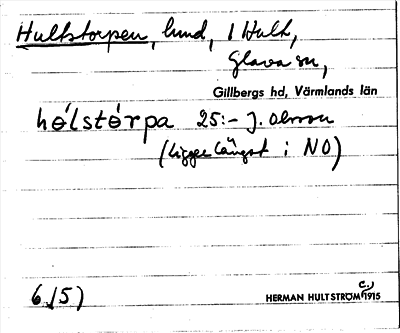 Hultstorpen, lund, 1 Hult,
Glava sn,
Gillbergs hd, Värmlands län
hólstórpa 25:- J. Olsson
(Ligger längst i NO)
6.(5)
c.
HERMAN HULTSTRÖM 1915